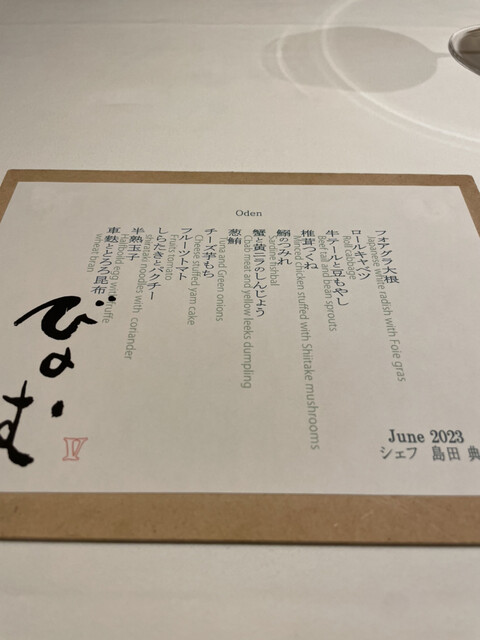 Oden
フォアグラ大根
Japanese white radish with Foie gras
ロールキャベツ
Roll cabbage
牛テールと豆もやし
Beef tail and bean sprouts
椎茸つくね
Minced chicken stuffed with Shiitake mushrooms
鰯のつみれ
Sardine fishbal
蟹と黄ニラのしんじょう
Crab meat and yellow leeks dumpling
葱鮪
Tuna and Green onions
チーズ芋もち
Cheese stuffed yam cake
フルーツトマト
Fruits tomato
しらたきとパクチー
shirataki noodles with coriander
半熟玉子
Halfboild egg with truffe
車麩ととろろ昆布
wheat bran
びのむ
IV
June 2023
シェフ 島田 典